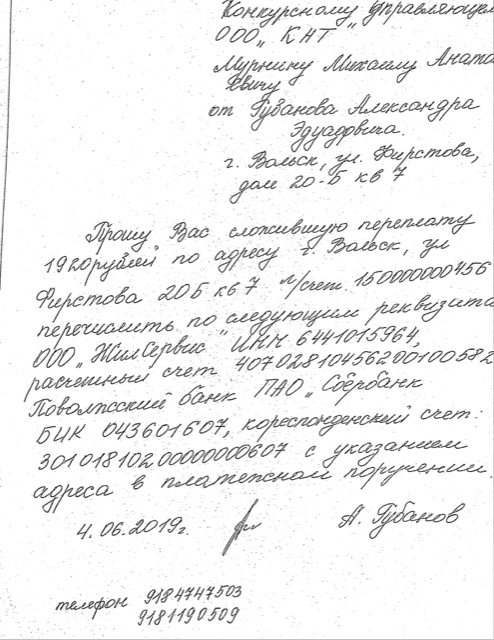 Конкурсному управляющем
ООО „КНТ"
Мурнину Михаилу Анато
евичу
от Губанова Александра
Эдуадовича.
г. Вольск, ул. Фирстова,
дом 20-Б кв 7
Прошу Вас сложившую переплату
1920рублей по адресу г. Вольск, ул
Фирстова 20Б кв 7 л/счет. 150000000456
перечислить по следующим реквизита
ООО „ЖилСервис" ИНН 6441015964,
расчетный счет 40702810456200100582
Поволжский банк ПАО „Сбербанк
БИК 043601607, кореспонденский счет:
30101810200000000607 с указанием
адреса в платежном поручении.
4.06.2019г. А. Губанов
телефон 9184747503
9181190509